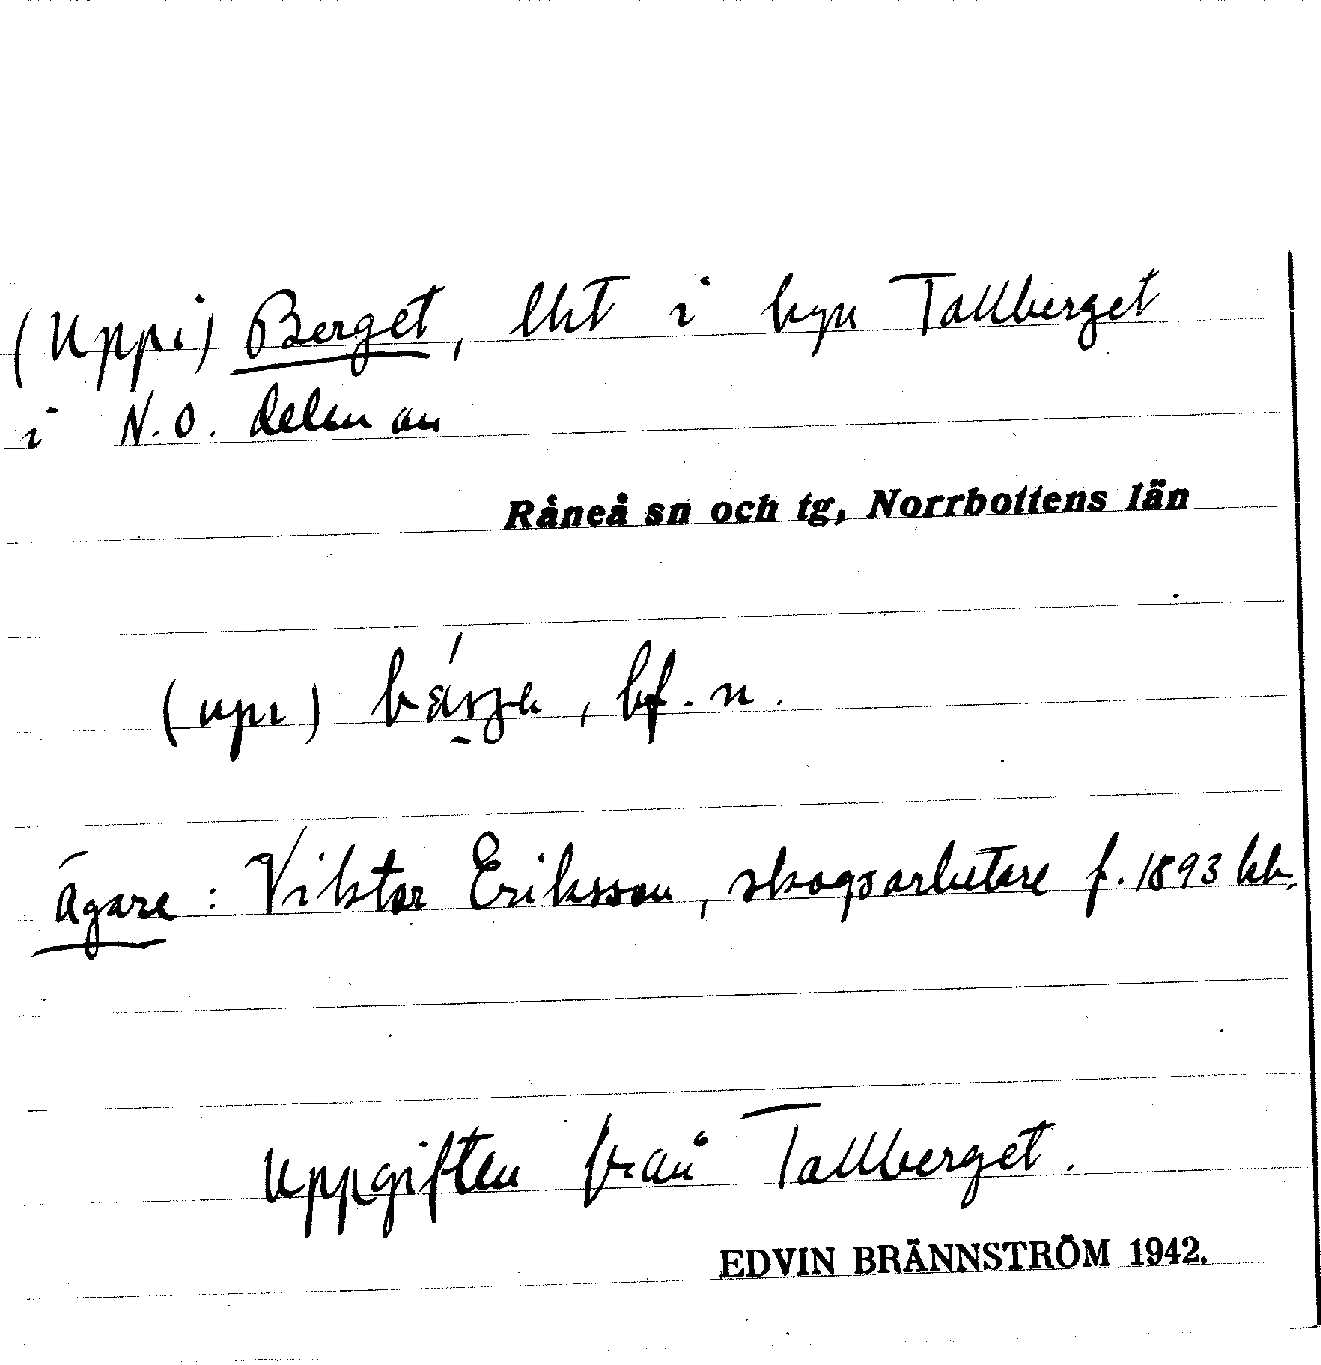 (Uppi) Berget, lht i byn Tallberget
i N.O. delen av
Råneå sn och tg, Norrbottens län
(upı) , bf. n.
Ägare: Viktor Eriksson, skogsarbetare f. 1893 hh.
Uppgiften från Tallberget.
EDVIN BRÄNNSTRÖM 1942.